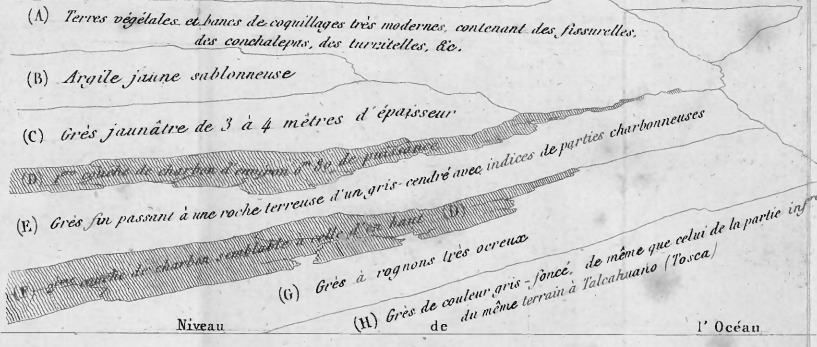 (A) Terres végétales et bancs de coquillages très modernes, contenant des fissurelles,
des conchalepas, des turritelles, &c.
(B) Argile jaune sablonneuse
(C) Grès jaunâtre de 3 à 4 mètres d'épaisseur
(D) 1ère couche de charbon d'environ 0m 80 de puissance
(E) Grès fin passant à une roche terreuse d'un gris-cendré avec indices de parties charbonneuses
(F) 2ème couche de charbon semblable à celle d'en haut (D)
(G) Grès à rognons très ocreux
(H) Grès de couleur gris-foncé, de même que celui de la partie
du même terrain à Talcahuano (Tosca)
Niveau de l'Océan